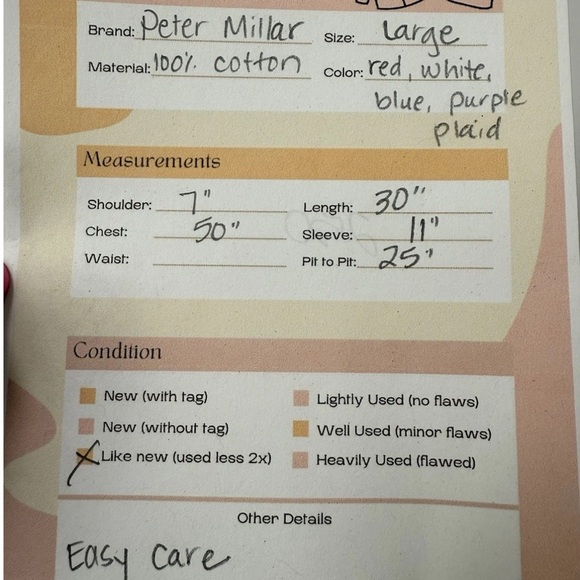 Brand: Peter Millar Size: Large
Material: 100% cotton Color: red, white,
blue, purple
plaid
Measurements
Shoulder: 7" Length: 30"
Chest: 50" Sleeve: 11"
Waist: Pit to Pit: 25"
Condition
New (with tag) Lightly Used (no flaws)
New (without tag) Well Used (minor flaws)
Like new (used less 2x) Heavily Used (flawed)
Other Details
Easy Care